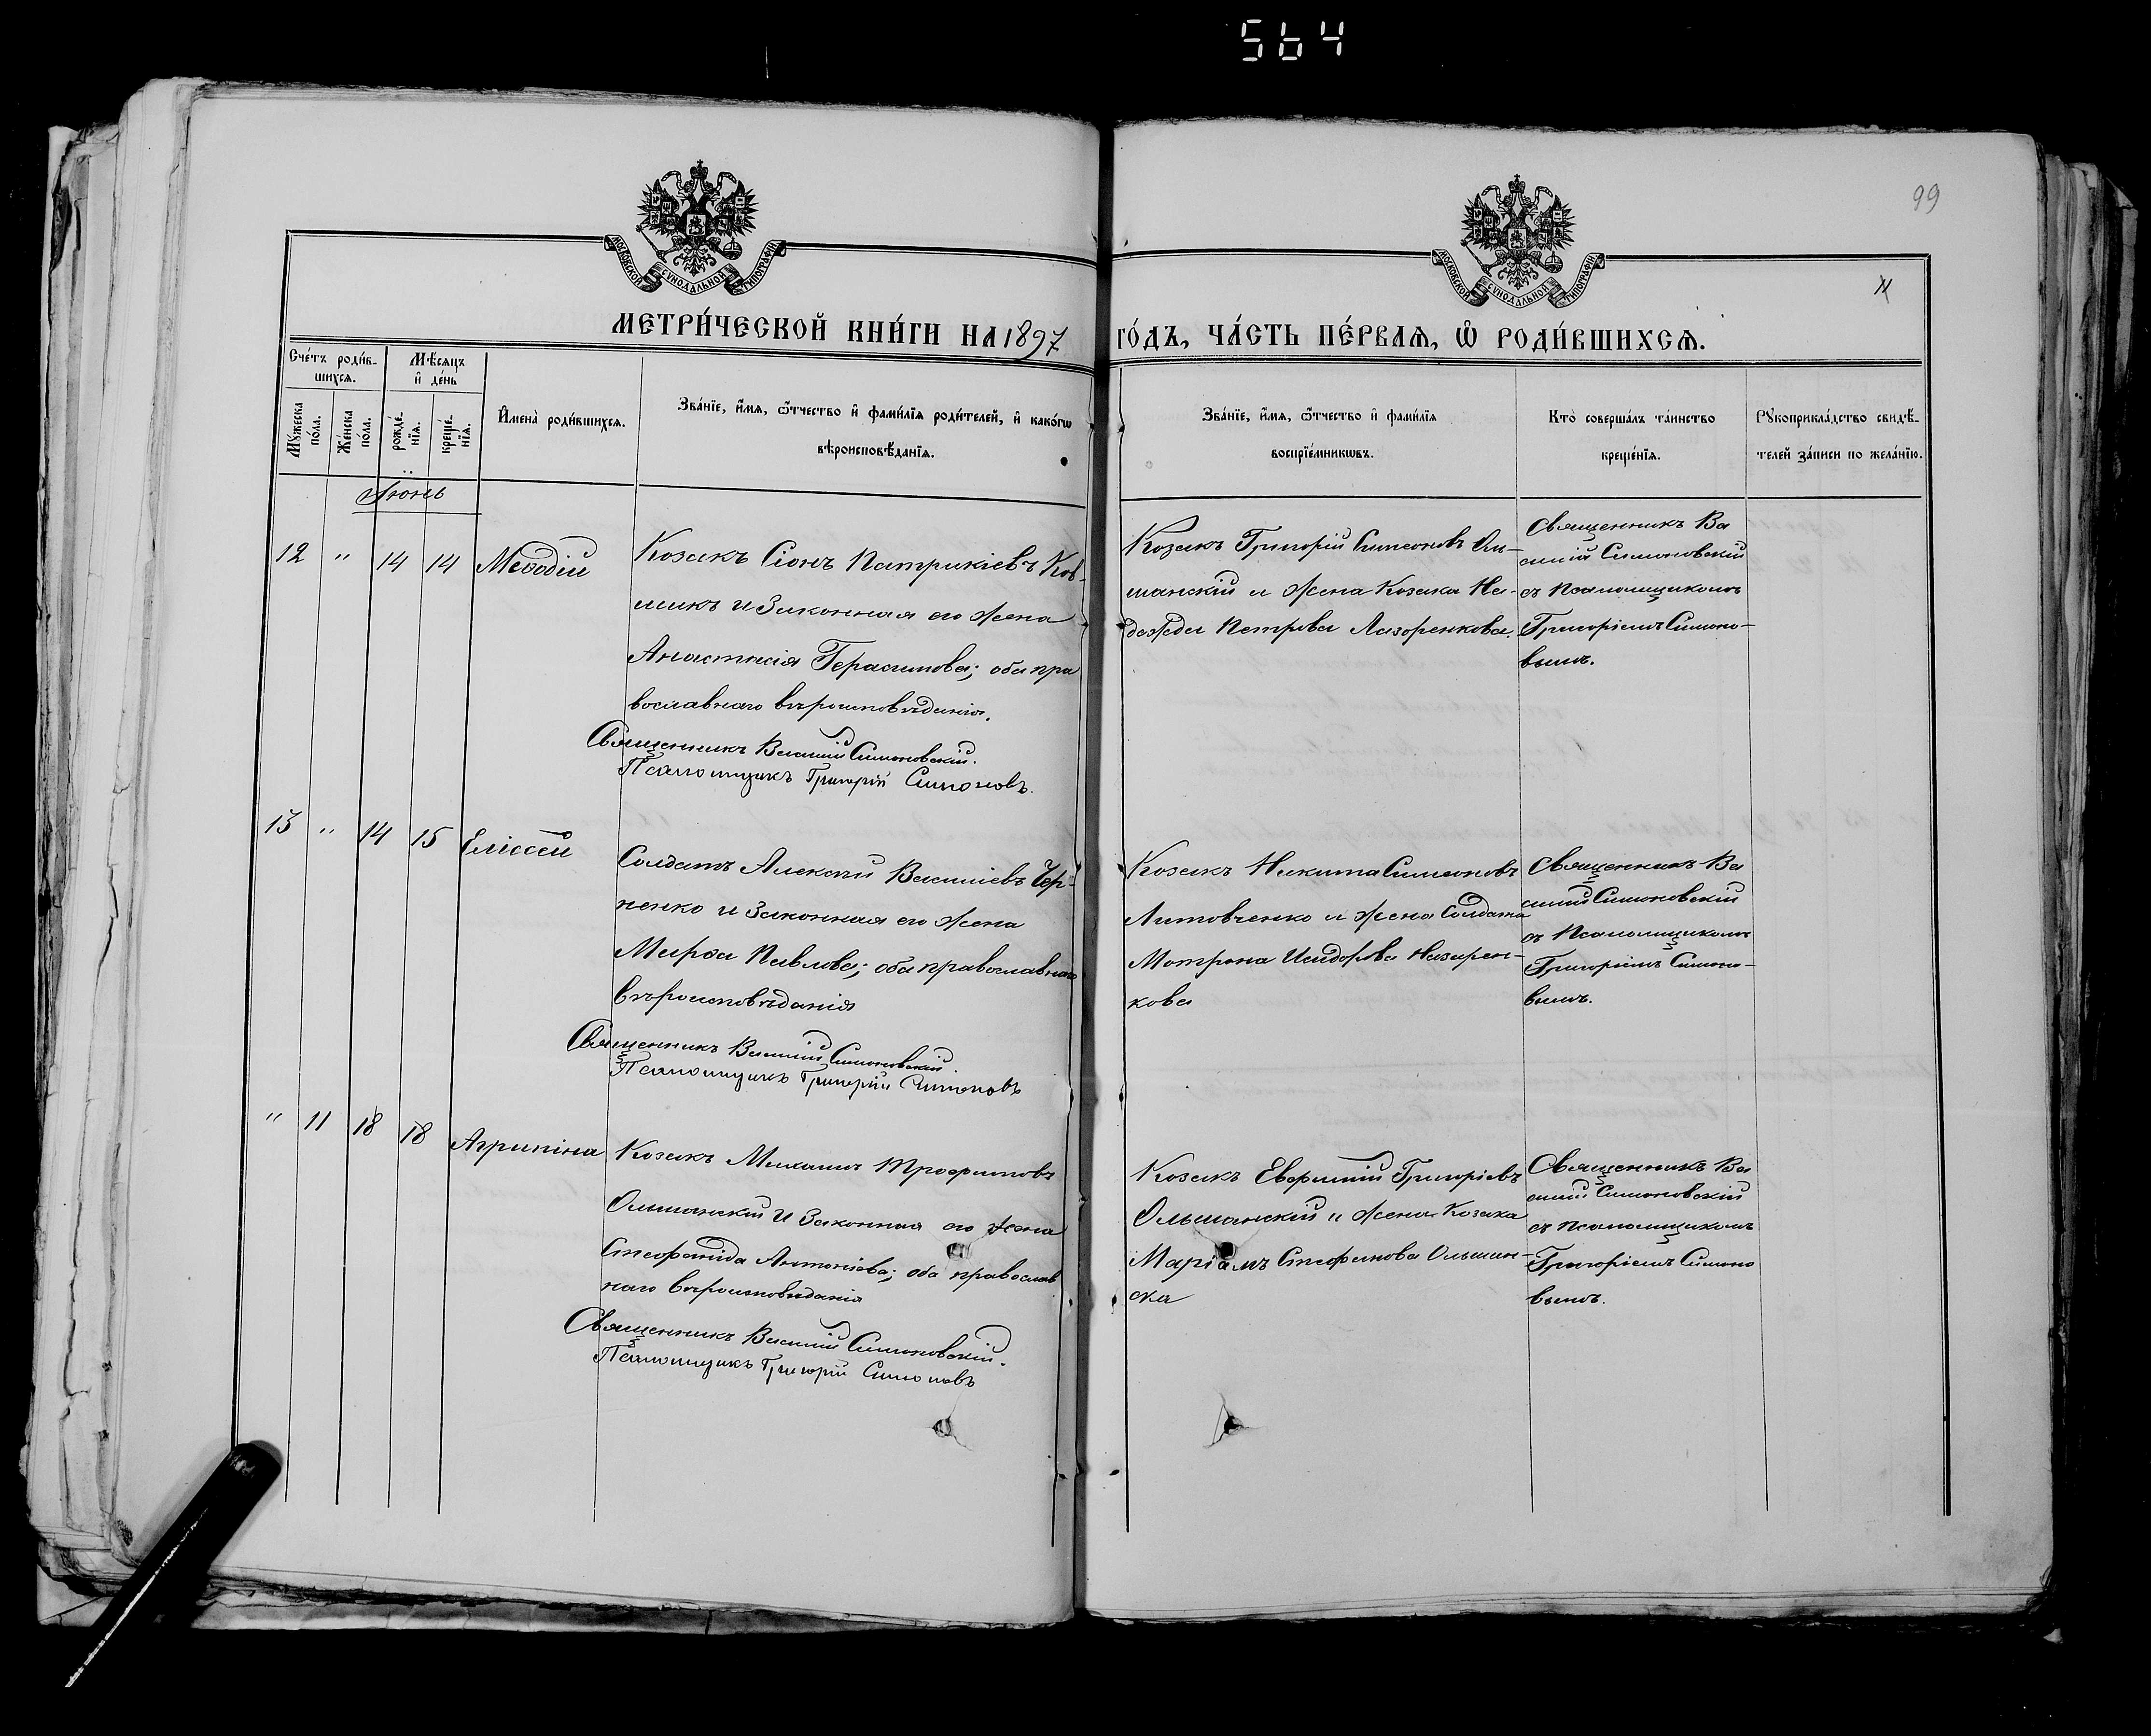 564
99
МОСКОВСКОЙ СѴНОДАЛЬНОЙ ТИПОГРАФІИ
МОСКОВСКОЙ СѴНОДАЛЬНОЙ ТИПОГРАФІИ
11
МЕТРИ́ЧЕСКОЙ КНИ́ГИ НА 1897 ГО́ДЪ, ЧА́СТЬ ПЕ́РВАѦ, Ѡ҆ РОДИ́ВШИХСѦ.
Сче́тъ роди́в-
шихсѧ.
Мѣ́сѧцъ
и҆ де́нь
Мꙋ́жеска
по́ла.
Же́нска
по́ла.
рожде́-
нїѧ.
креще́-
нїѧ.
И҆мена̀ роди́вшихсѧ.
Зва́нїе, и҆́мѧ, ѻ҆́тчество и҆ фами́лїѧ роди́телей, и҆ како́гѡ
вѣроисповѣ́данїѧ.
Зва́нїе, и҆́мѧ, ѻ҆́тчество и҆ фами́лїѧ
воспрїе́мникѡвъ.
Кто̀ соверша́лъ та́инство
креще́нїѧ.
Рꙋкоприкла́дство свидѣ́-
телей за́писи по жела́нїю.
Іюнь
12 " 14 14 Меѳодій
Козакъ Сіонъ Патрикіевъ Ков-
шикъ и законная его жена
Анастасія Герасимова; оба пра
вославнаго вѣроисповѣданія.
Священникъ Василій Симоновскій.
Псаломщикъ Григорій Симоновъ.
Козакъ Григорій Симеоновъ Ол-
шанскій и жена Козака На-
дежда Петрова Лазоренкова.
Священникъ Ва
силій Симоновскій
съ Псаломщикомъ
Григоріемъ Симоно-
вымъ.
13 " 14 15 Елиссей
Солдатъ Алексѣй Василіевъ Чер-
ненко и законная его жена
Марѳа Павлова; оба православнаго
вѣроисповѣданія
Священникъ Василій Симоновскій.
Псаломщикъ Григорій Симоновъ
Козакъ Никита Симеоновъ
Литовченко и жена Солдата
Мотрона Исидорова Назарен-
кова
Священникъ Ва
силій Симоновскій
съ Псаломщикомъ
Григоріемъ Симоно-
вымъ.
" 11 18 18 Агрипіна
Козакъ Михаилъ Трофимовъ
Ольшанскій и законная его жена
Стефанида Антоніева; оба православ
наго вѣроисповѣданія
Священникъ Василій Симоновскій.
Псаломщикъ Григорій Симоновъ
Козакъ Евфимій Григоріевъ
Ольшанскій и жена Козака
Маріамъ Стефанова Ольшан-
ска
Священникъ Ва
силій Симоновскій
съ Псаломщикомъ
Григоріемъ Симоно
вымъ.